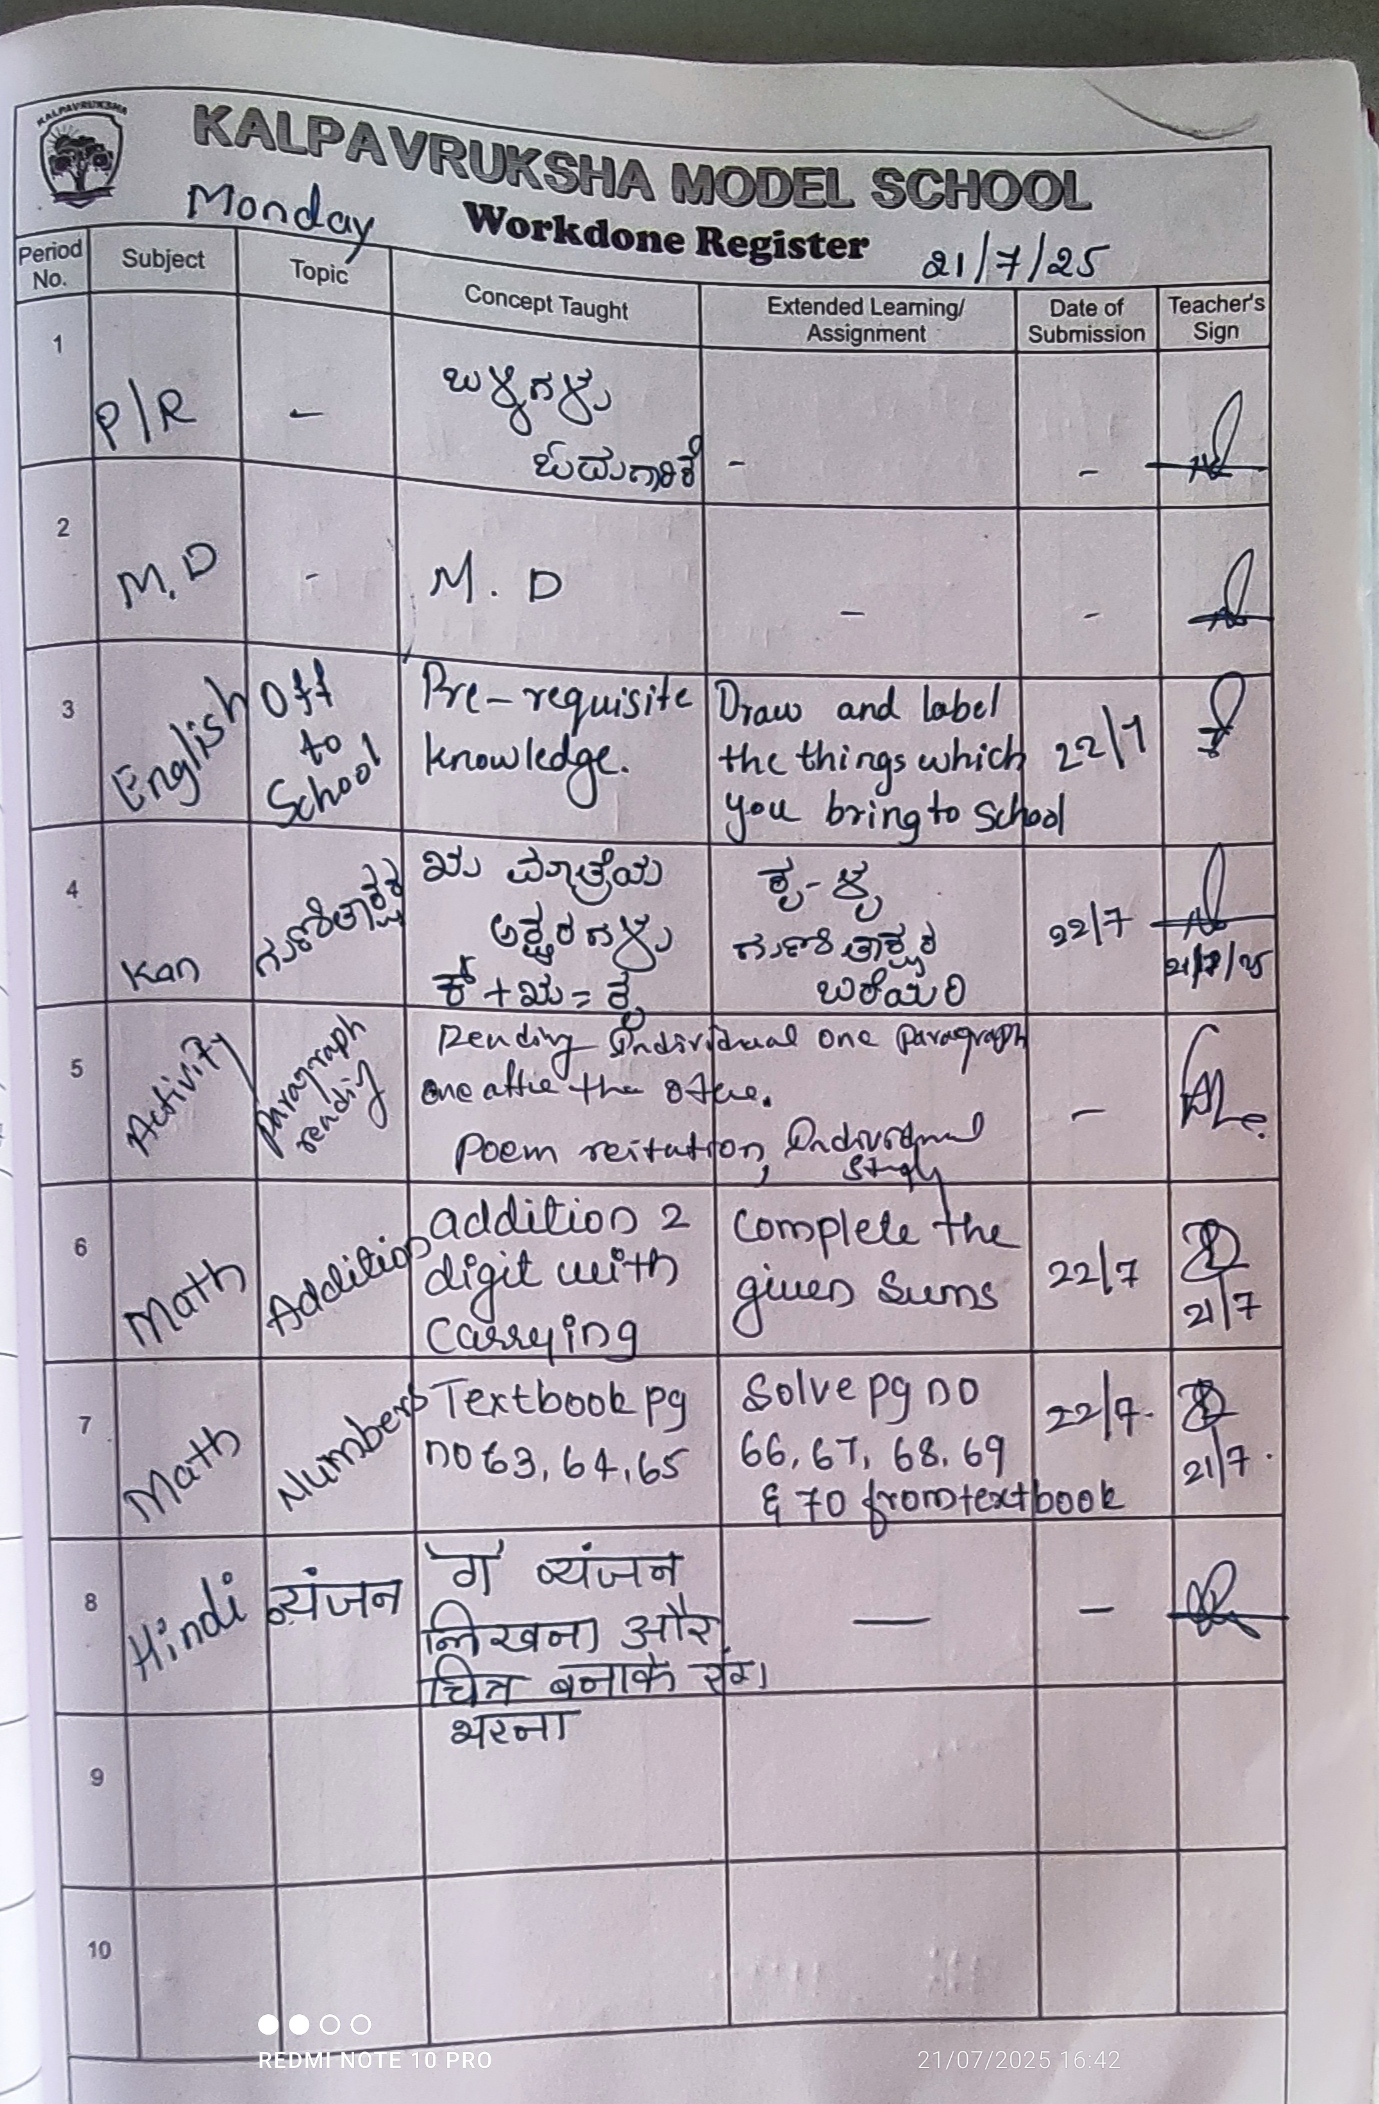 KALPAVRUKSHA
KALPAVRUKSHA MODEL SCHOOL
Monday Workdone Register 21/7/25
Period No. Subject Topic Concept Taught Extended Learning/ Assignment Date of Submission Teacher's Sign
1 P/R - ಬಳ್ಳಿಗಳು - -
2 M.D - M.D - -
3 English Off to School Pre-requisite knowledge. Draw and label the things which you bring to School 22/7
4 Kan ಗುಣಿತಾಕ್ಷರ ಋ ಮಾತ್ರೆಯ ಅಕ್ಷರಗಳು ಕ್+ಋ=ಕೃ ಕೃ-ಳೃ ಗುಣಿತಾಕ್ಷರ ಬರೆಯಿರಿ 22/7 21/7/25
5 Activity Paragraph reading Reading Individual one paragraph
one after the other.
Poem reitation, Individual
-
6 Math Addition addition 2 digit with Carrying Complete the given Sums 22/7 21/7
7 Math Numbers Textbook pg no 63, 64, 65 Solve pg no 66, 67, 68, 69 & 70 from textbook 22/7. 21/7.
8 Hindi व्यंजन 'ग' व्यंजन लिखना और चित्र बनाके रंग भरना — -
9
10
REDMI NOTE 10 PRO 21/07/2025 16:42